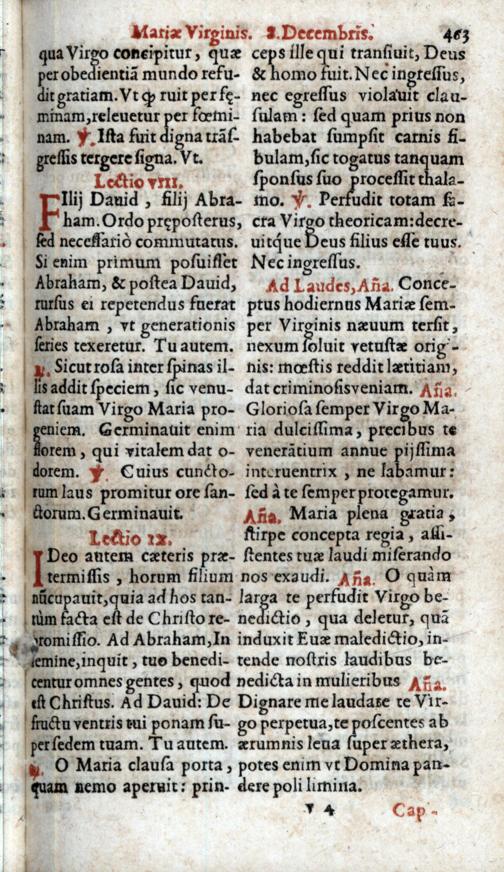 Mariæ Virginis. 8. Decembris. 463
qua Virgo concipitur, quæ
per obedientiā mundo refu-
dit gratiam. Vt ꝙ ruit per fę-
minam, releuetur per fœmi-
nam. ℣. Ista fuit digna trāſ-
greſſis tergere ſigna. Vt.
Lectio viii.
FIlij Dauid, filij Abra-
ham. Ordo prępoſterus,
ſed neceſſariò commutatus.
Si enim primum poſuiſſet
Abraham, & poſtea Dauid,
rurſus ei repetendus fuerat
Abraham, vt generationis
ſeries texeretur. Tu autem.
℟. Sicut roſa inter ſpinas il-
lis addit ſpeciem, ſic venu-
ſtat ſuam Virgo Maria pro-
geniem. Germinauit enim
florem, qui vitalem dat o-
dorem. ℣. Cuius cuncto-
rum laus promitur ore ſan-
ctorum. Germinauit.
Lectio ix.
IDeo autem cæteris præ-
termiſſis, horum filium
nūcupauit, quia ad hos tan-
tùm facta eſt de Chriſto re-
promiſſio. Ad Abraham, In
ſemine, inquit, tuo benedi-
centur omnes gentes, quod
eſt Chriſtus. Ad Dauid: De
fructu ventris tui ponam ſu-
per ſedem tuam. Tu autem.
℟. O Maria clauſa porta,
quam nemo aperuit: prin-
ceps ille qui tranſiuit, Deus
& homo fuit. Nec ingreſſus,
nec egreſſus violauit clau-
ſulam: ſed quam prius non
habebat ſumpſit carnis fi-
bulam, ſic togatus tanquam
ſponſus ſuo proceſſit thala-
mo. ℣. Perfudit totam ſa-
cra Virgo theoricam: decre-
uitque Deus filius eſſe tuus.
Nec ingreſſus.
Ad Laudes, Aña. Conce-
ptus hodiernus Mariæ ſem-
per Virginis næuum terſit,
nexum ſoluit vetuſtæ orig-
nis: mœſtis reddit lætitiam,
dat criminoſis veniam. Aña.
Glorioſa ſemper Virgo Ma-
ria dulciſſima, precibus te
venerātium annue pijſſima
interuentrix, ne labamur:
ſed à te ſemper protegamur.
Aña. Maria plena gratia,
ſtirpe concepta regia, aſſi-
ſtentes tuæ laudi miſerando
nos exaudi. Aña. O quàm
larga te perfudit Virgo be-
nedictio, qua deletur, quā
induxit Euæ maledictio, in-
tende noſtris laudibus be-
nedicta in mulieribus Aña.
Dignare me laudare te Vir-
go perpetua, te poſcentes ab
ærumnis leua ſuper æthera,
potes enim vt Domina pan-
dere poli limina.
V 4 Cap-